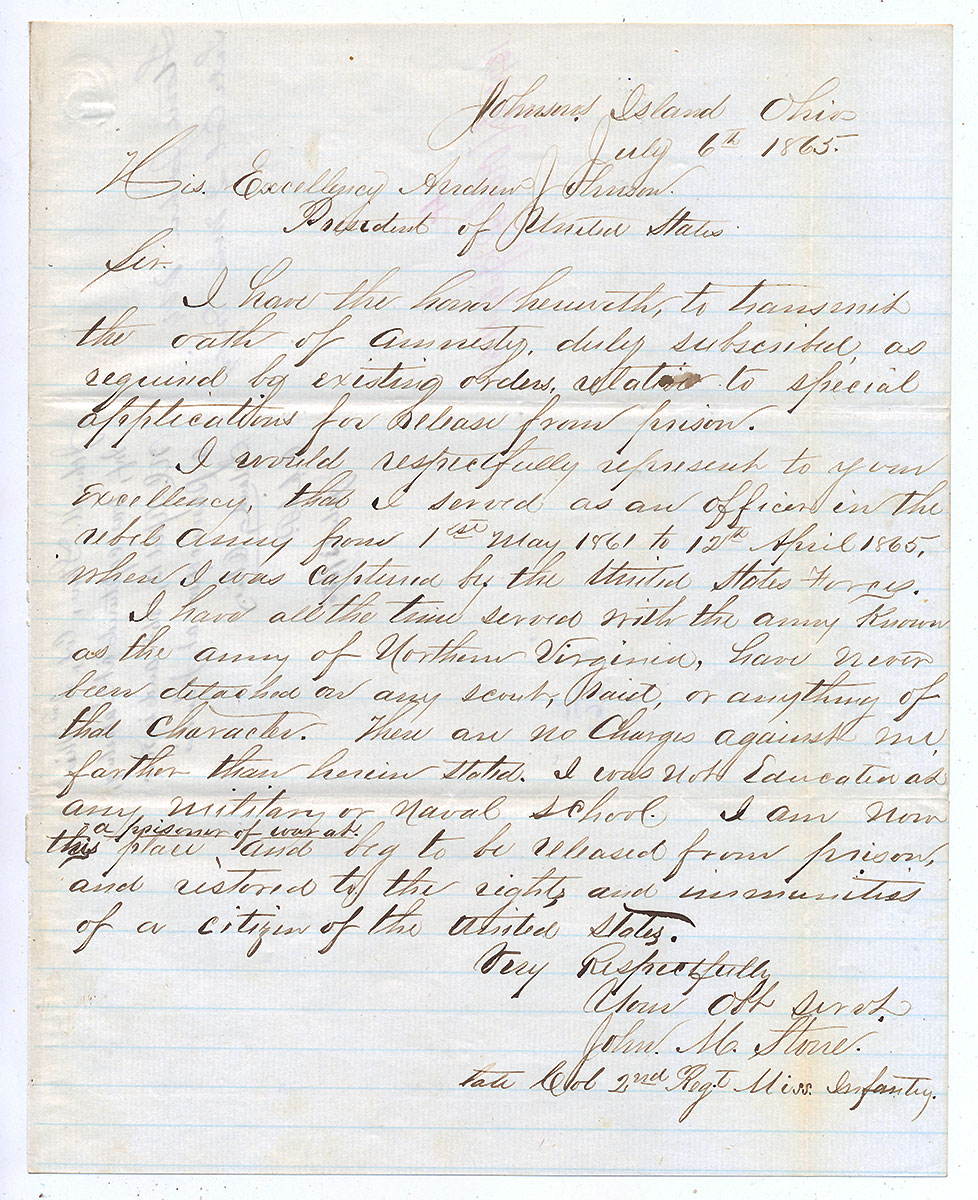 Johnsons Island Ohio
July 6th 1865.
His. Excellency Andrew Johnson.
President of United States
Sir.
I have the honor herewith, to transmit
the oath of amnesty, duly subscribed, as
required by existing orders, relative to special
applications for release from prison.
I would respectfully represent to your
Excellency, that I served as an officer in the
rebel army from 1st May 1861 to 12th April 1865,
when I was captured by the United States Forces.
I have all the time served with the army Known
as the army of Northern Virginia, have never
been detached on any scout, Raid, or anything of
that character. There are no Charges against me,
farther than herein stated. I was not Educated at
any military or Naval school. I am now
a prisoner of war at
this place and beg to be released from prison,
and restored to the rights and immunities
of a citizen of the United States.
Very Respectfully
Your Obt servt.
John. M. Stone.
late Col 2nd Regt Miss. Infantry.